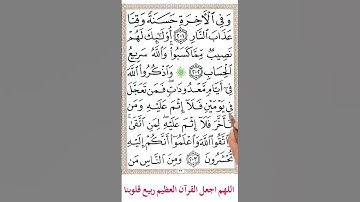 وَفِي الْآخِرَةِ حَسَنَةً وَقِنَا
عَذَابَ النَّارِ ﴿٢٠١﴾ أُولَٰئِكَ لَهُمْ
نَصِيبٌ مِّمَّا كَسَبُوا وَاللَّهُ سَرِيعُ
الْحِسَابِ ﴿٢٠٢﴾ ۞ وَاذْكُرُوا اللَّهَ
فِي أَيَّامٍ مَّعْدُودَاتٍ فَمَن تَعَجَّلَ
فِي يَوْمَيْنِ فَلَا إِثْمَ عَلَيْهِ وَمَن
تَأَخَّرَ فَلَا إِثْمَ عَلَيْهِ لِمَنِ اتَّقَىٰ
وَاتَّقُوا اللَّهَ وَاعْلَمُوا أَنَّكُمْ إِلَيْهِ
تُحْشَرُونَ ﴿٢٠٣﴾ وَمِنَ النَّاسِ مَن
اللهم اجعل القرآن العظيم ربيع قلوبنا